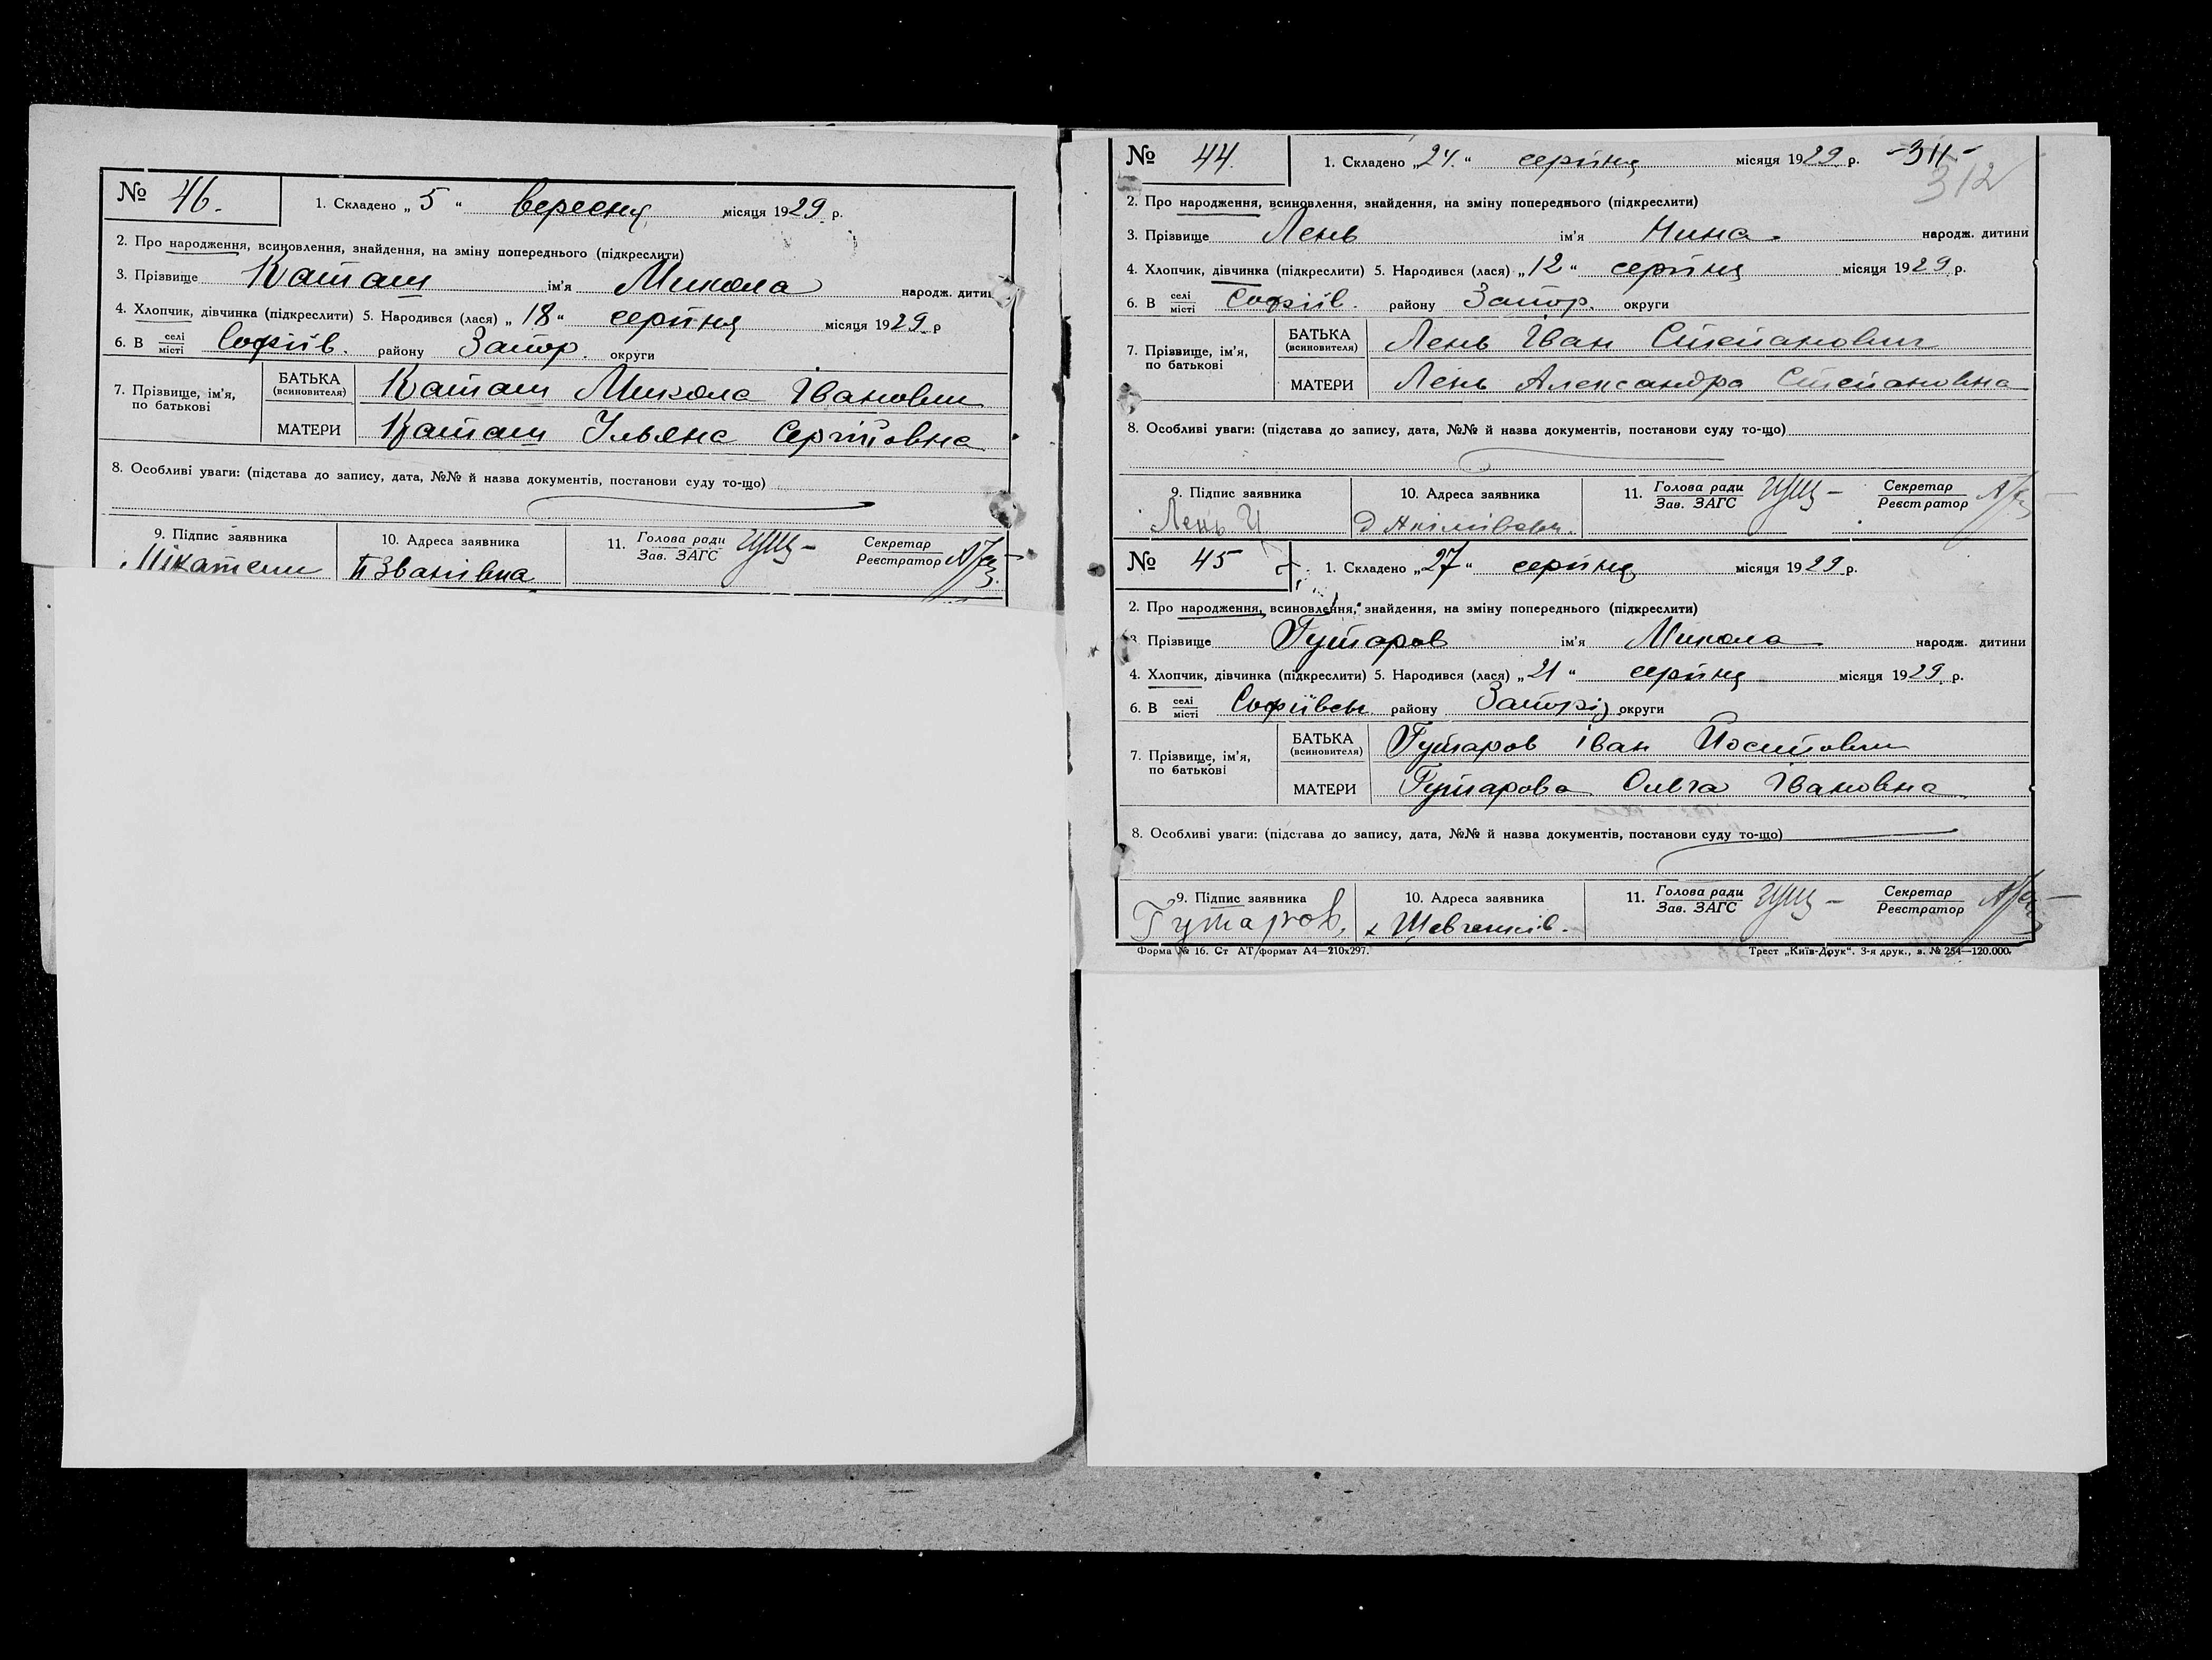 № 46.
1. Складено „ 5 “ вересня місяця 1929 р.
2. Про народження, всиновлення, знайдення, на зміну попереднього (підкреслити)
3. Прізвище Каташ ім'я Микола народж. дити
4. Хлопчик, дівчинка (підкреслити) 5. Народився (лася) „ 18 “ серпня місяця 1929 р
6. В селі місті Софіїв. району Запор. округи
7. Прізвище, ім'я, по батькові
БАТЬКА (всиновителя) Каташ Микола Іванович
МАТЕРИ Каташ Ульяна Сергіївна
8. Особливі уваги: (підстава до запису, дата, №№ й назва документів, постанови суду то-що)
9. Підпис заявника 10. Адреса заявника 11. Голова ради Зав. ЗАГС Секретар Реєстратор
Званівка
№ 44. 1. Складено „24.“ серпня місяця 1929 р. -311-
312
2. Про народження, всиновлення, знайдення, на зміну попереднього (підкреслити)
3. Прізвище Лень ім'я Нина народж. дитини
4. Хлопчик, дівчинка (підкреслити) 5. Народився (лася) „12“ серпня місяця 1929 р.
6. В селі місті Софіїв. району Запор. округи
7. Прізвище, ім'я, по батькові
БАТЬКА (всиновителя) Лень Іван Степанович
МАТЕРИ Лень Александра Степановна
8. Особливі уваги: (підстава до запису, дата, №№ й назва документів, постанови суду то-що)
9. Підпис заявника 10. Адреса заявника 11. Голова ради Зав. ЗАГС Секретар Реєстратор
Лень И
№ 45 1. Складено „27“ серпня місяця 1929 р.
2. Про народження, всиновлення, знайдення, на зміну попереднього (підкреслити)
3. Прізвище Гутаров ім'я Микола народж. дитини
4. Хлопчик, дівчинка (підкреслити) 5. Народився (лася) „21“ серпня місяця 1929 р.
6. В селі місті Софіївськ. району Запорі) округи
7. Прізвище, ім'я, по батькові
БАТЬКА (всиновителя) Гутаров Іван Йосипович
МАТЕРИ Гутарова Ольга Івановна
8. Особливі уваги: (підстава до запису, дата, №№ й назва документів, постанови суду то-що)
9. Підпис заявника 10. Адреса заявника 11. Голова ради Зав. ЗАГС Секретар Реєстратор
Гутаров. х Шевченків.
Форма № 16. Ст АТ/формат А4—210х297. Трест „Київ-Друк“. 3-я друк., з. № 254—120.000.